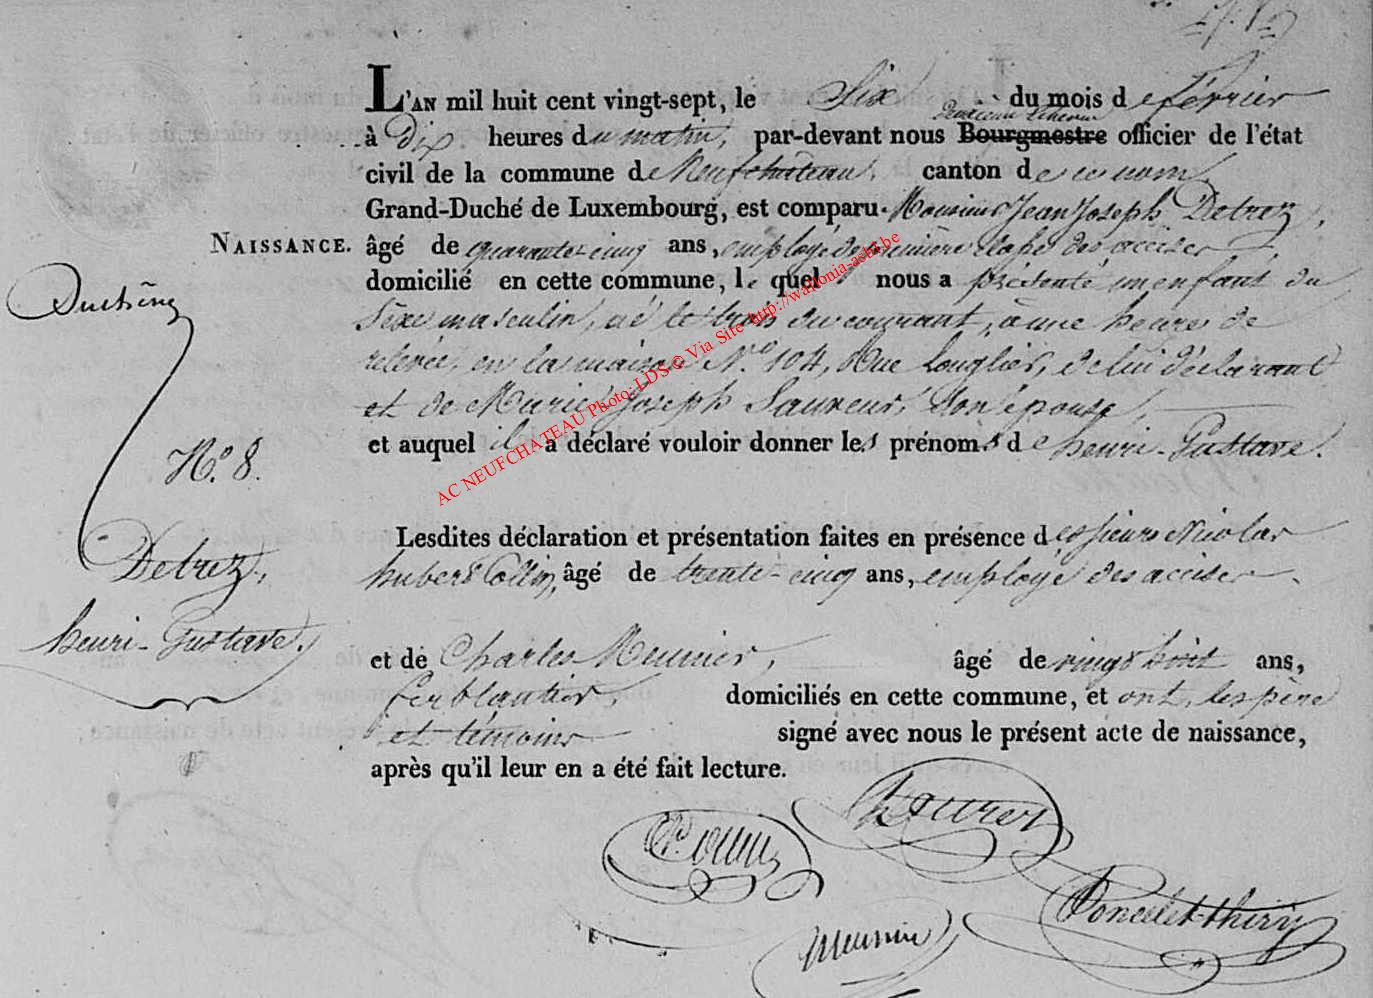 L'AN mil huit cent vingt-sept, le Six du mois de février
deuxième Echevin
à Dix heures du matin, par-devant nous Bourgmestre officier de l'état
civil de la commune de Neufchâteau, canton de ce nom,
Grand-Duché de Luxembourg, est comparu Monsieur Jean Joseph Detrez,
NAISSANCE. âgé de quarante-cinq ans, employé de première classe des accises
domicilié en cette commune, lequel nous a présenté un enfant du
Duchêne
Sexe masculin, né le trois du courant, à une heure de
relevée, en la maison N.º 104, Rue Longlier, de lui déclarant
et de Marie Joseph Sauveur, Son épouse,
et auquel il a déclaré vouloir donner les prénoms de henri-Gustave.
Nº. 8.
Lesdites déclaration et présentation faites en présence des sieurs Nicolas
Detrez,
hubert Collin, âgé de trente-cinq ans, employé des accises
henri-Gustave.
et de Charles Meunier, âgé de vingt huit ans,
ferblantier, domiciliés en cette commune, et ont, les père
et témoins signé avec nous le présent acte de naissance,
après qu'il leur en a été fait lecture.
Meunier
Poncelet-thiry
AC NEUFCHATEAU Photo: LDS © Via Site http://wallonia-asbl.be